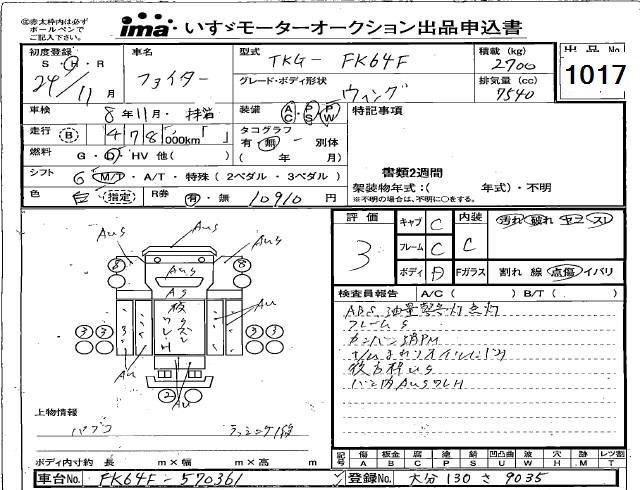 ㊟赤太枠内は必ず
ボールペンで
ご記入下さい
ima いすゞモーターオークション出品申込書
初度登録 S・H・R 24/11月
車名 ファイター
型式 TKG- FK64F
積載(kg) 2700
出品No. 1017
グレード・ボディ形状 ウィング
排気量(cc) 7540
車検 8年11月・抹消
装備 AC PS PW
特記事項
走行 B 478,000km「 」
タコグラフ 有・無 別体 ( 年 月)
燃料 G・D・HV 他( )
書類2週間
シフト 6 M/T・A/T・特殊(2ペダル・3ペダル)
架装物年式:( 年式)・不明
※不明の場合は、不明に○をする。
色 白 (指定)
R券 有・無 10910 円
評価 3
キャブ C
内装 C
汚れ 破れ ヤニ スレ
フレーム C
ボディ D
Fガラス 割れ 線 点傷 イバリ
検査員報告 A/C( ) B/T( )
ABS、油量警告灯点灯
フレームS
カンバン S月PM
後方枠US
バン内AUSワレH
AUS AUS
8 AUS 8
AS
AU
3 3 3 3
AU AU
2
上物情報
パブコ ラッシング1段
ボディ内寸約 長 m×幅 m×高 m
記号 傷A 板金B 腐C 塗P 錆S 凹凸曲U 波W 穴H 跡M レツ割T
車台No. FK64F-570361
登録No. 大分 130 さ 9035